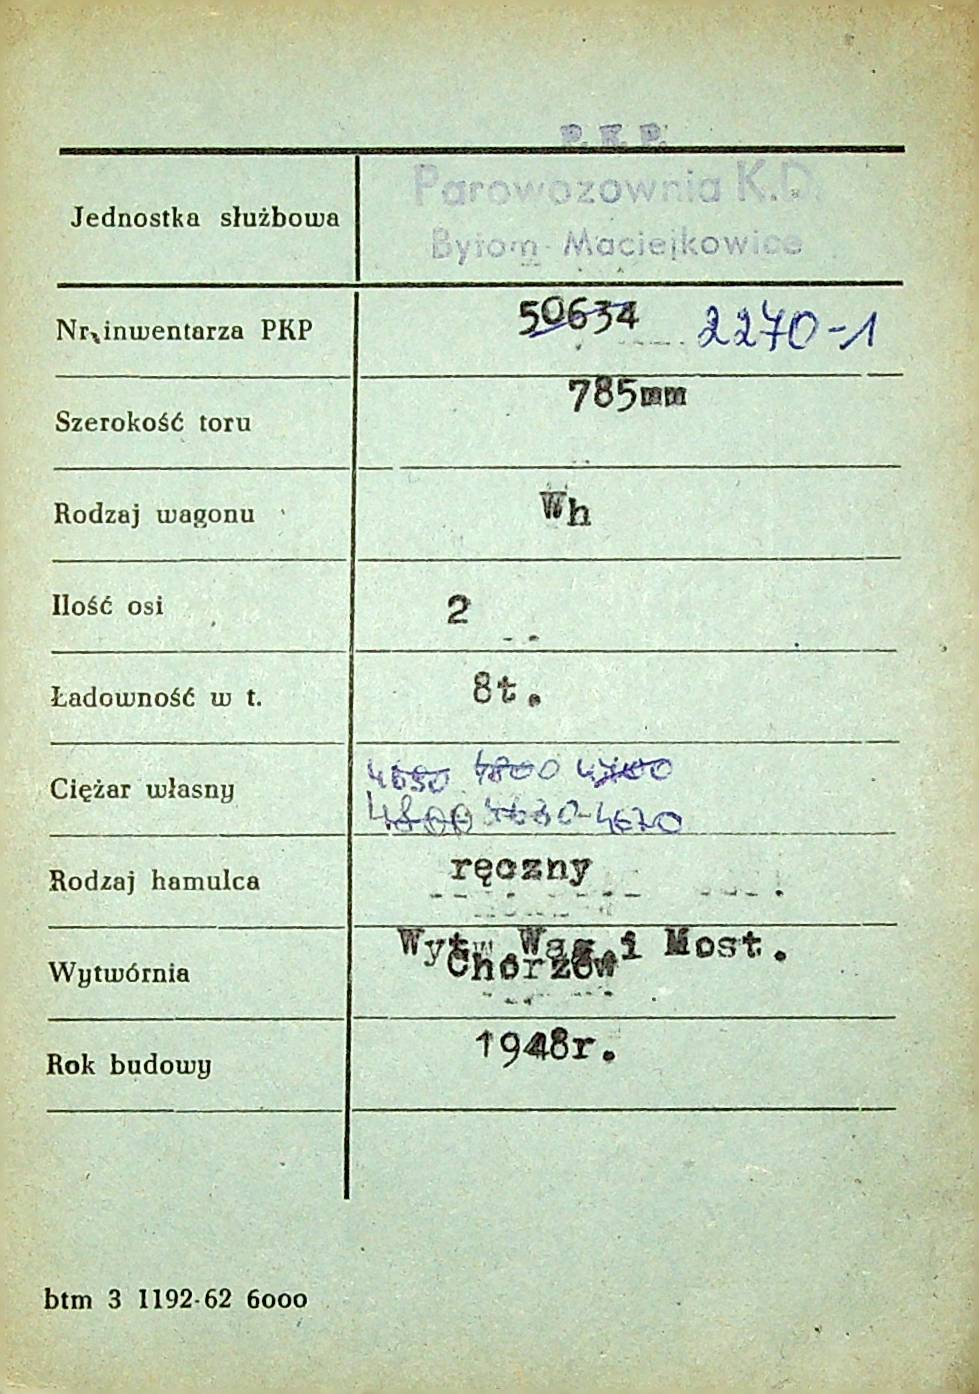 P. K. P.
Parowozownia K.D.
Jednostka służbowa
Bytom-Maciejkowice
Nr inwentarza PKP 50634 2270-1
Szerokość toru 785mm
Rodzaj wagonu Wh
Ilość osi 2
Ładowność w t. 8t.
Ciężar własny 4650 4800 4700
4800 4670
Rodzaj hamulca ręczny
Wytw. Wag. i Most.
Wytwórnia Chorzów
Rok budowy 1948r.
btm 3 1192-62 6000